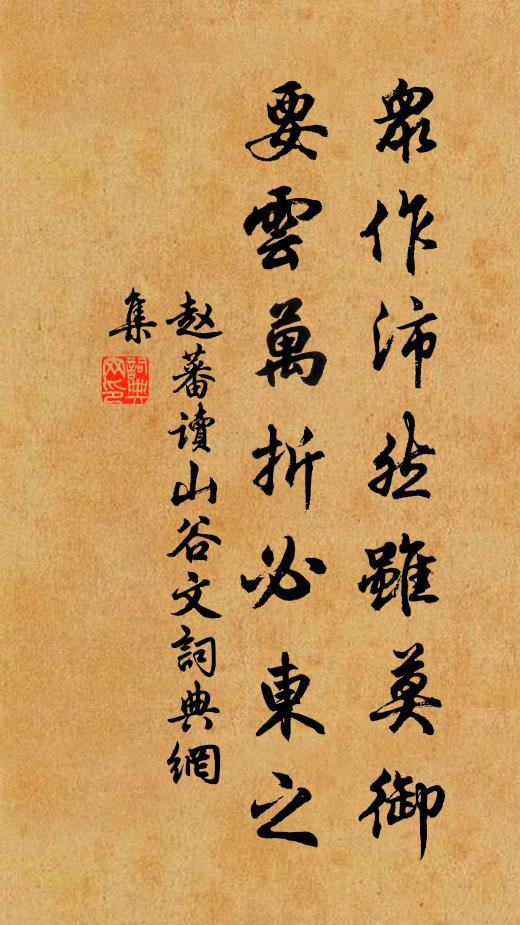 眾作沛然雖莫御
要雲萬折必東之
赵蕃讀山谷文詞典網
集
詞典
网印